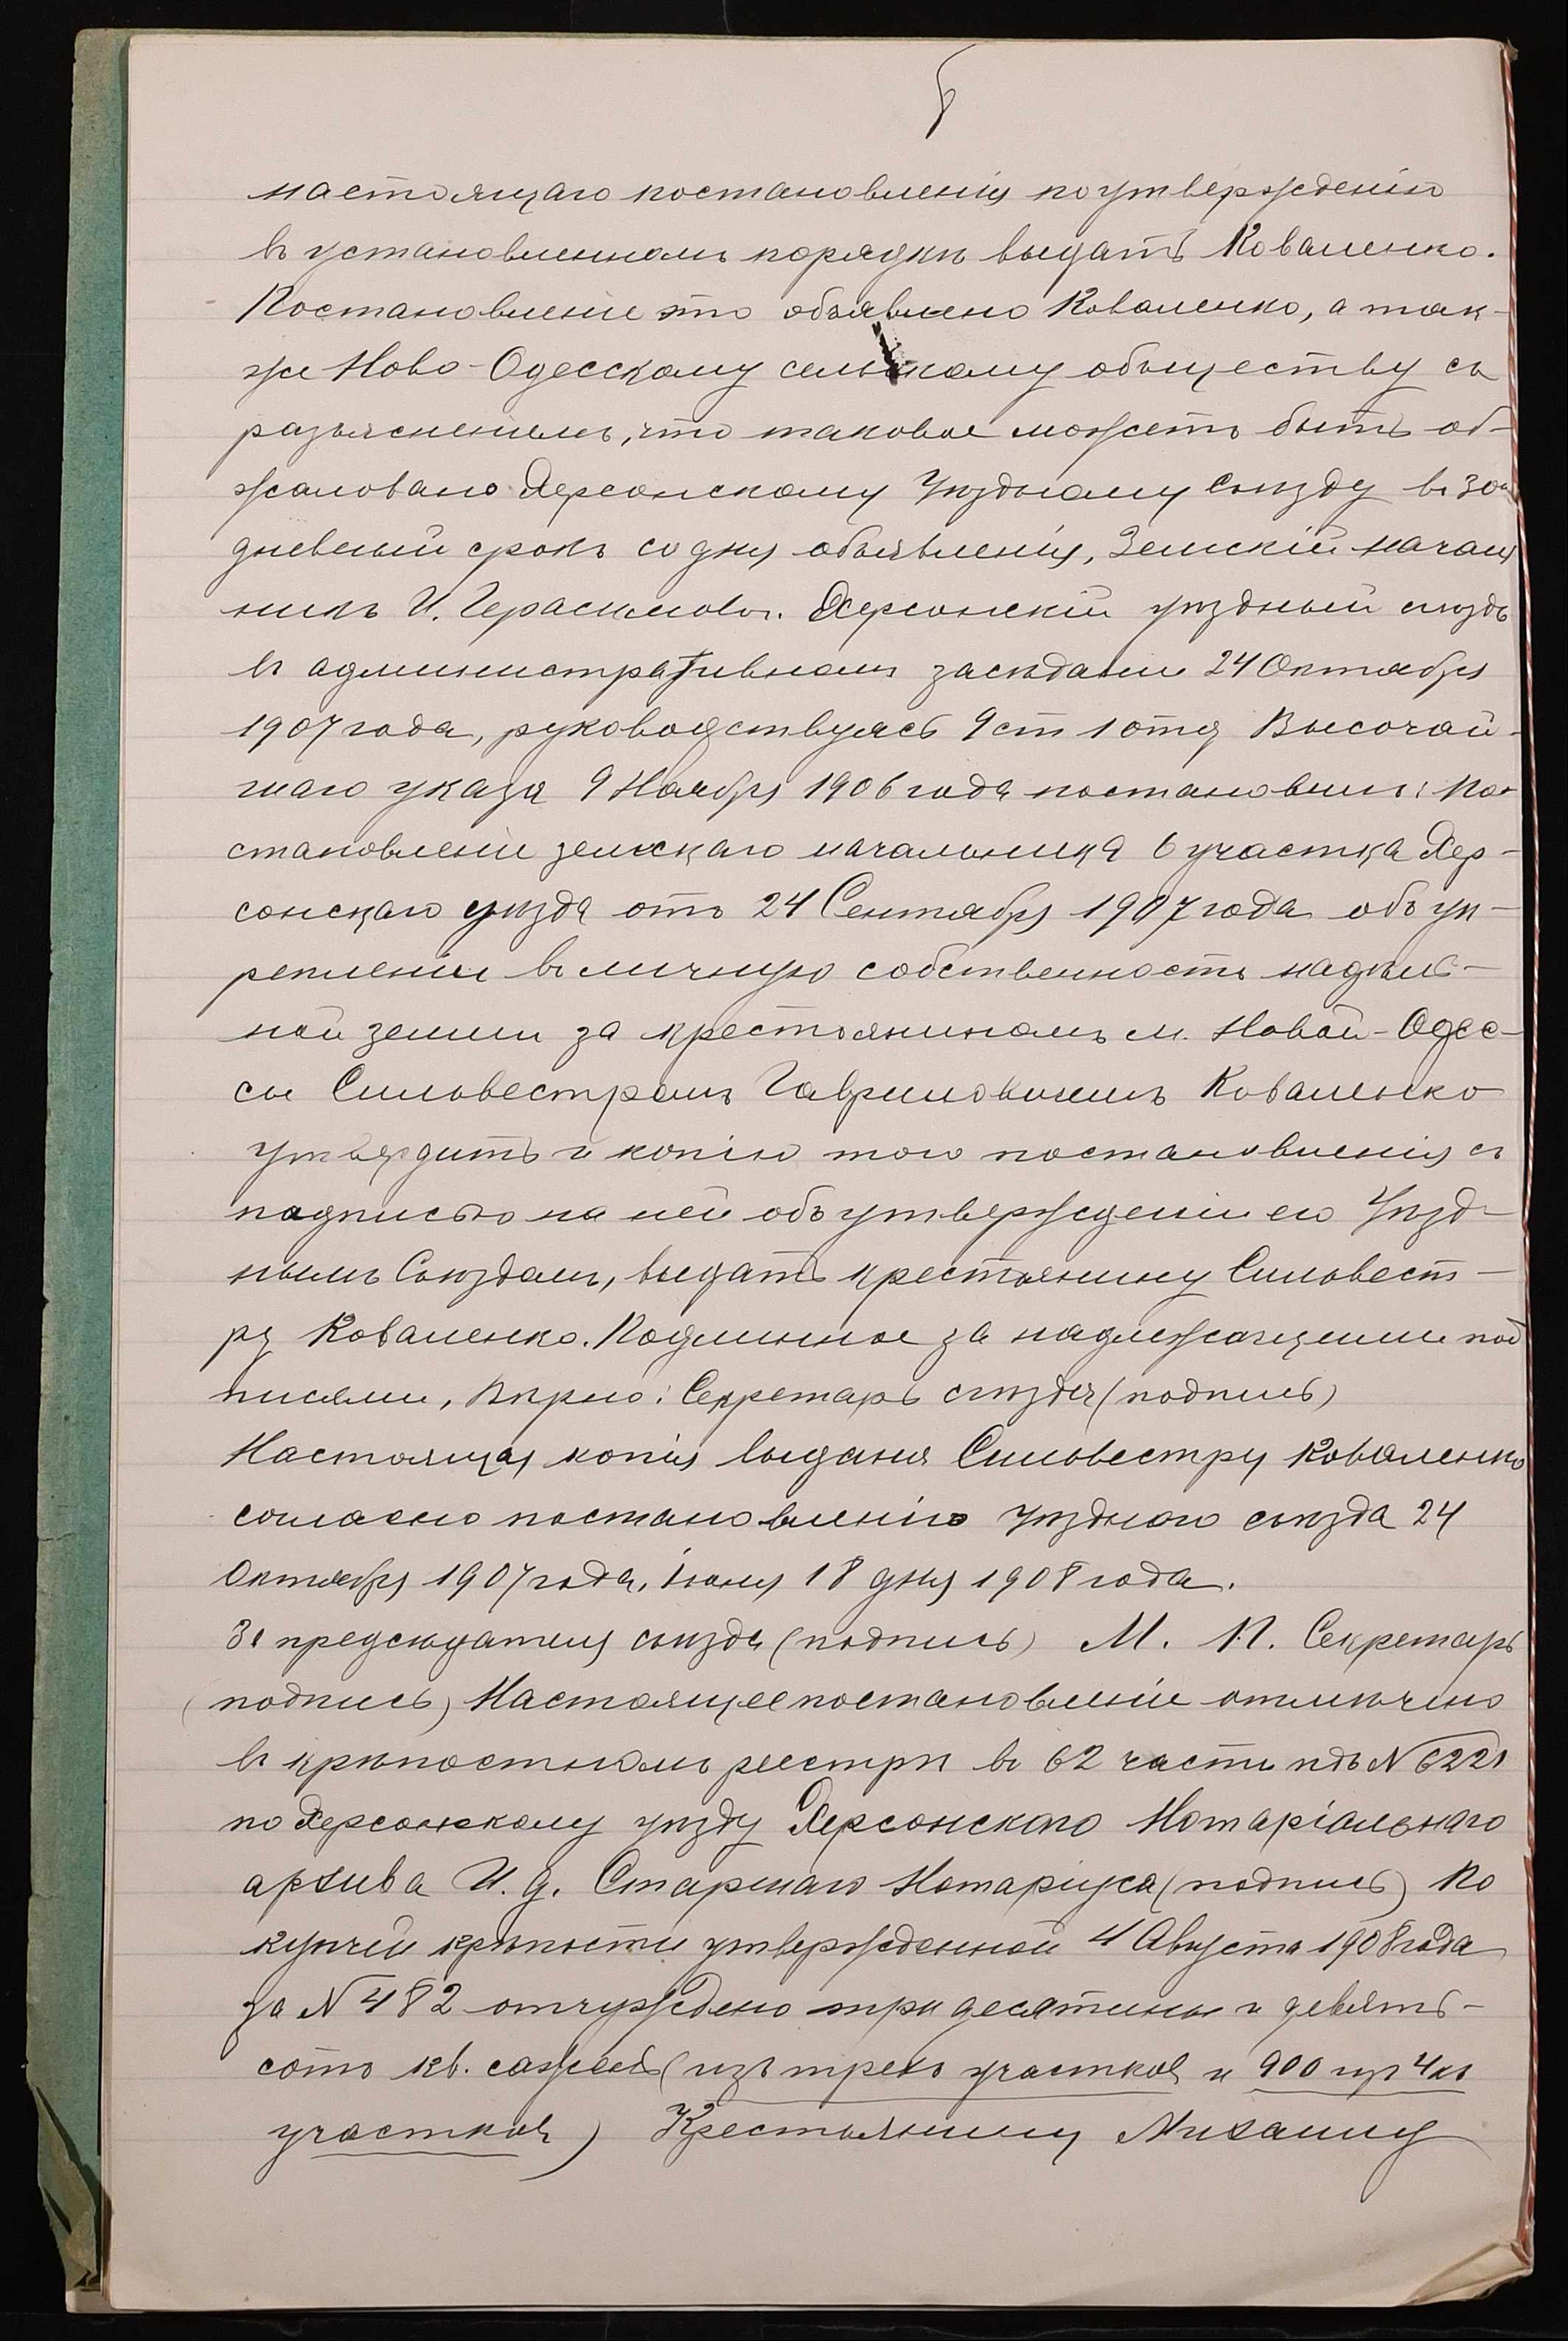 настоящаго постановленія по утвержденію
въ установленномъ порядкѣ выдать Коваленко.
Постановленіе это объявлено Коваленко, а так-
же Ново-Одесскому сельскому обществу съ
разъясненіемъ, что таковое можетъ быть об-
жаловано Херсонскому Уѣздному Съѣзду въ 30и
дневный срокъ со дня объявленія, Земскій началь
никъ И. Герасимовъ. Херсонскій уѣздный съѣздъ
въ административномъ засѣданіи 24 Октября
1907 года, руководствуясь 9 ст 1 отд Высочай-
шаго указа 9 Ноября 1906 года постановилъ: По-
становленіе земскаго начальника 6 участка Хер-
сонскаго уѣзда отъ 24 Сентября 1907 года объ ук-
репленіи въ личную собственность надѣль-
ной земли за крестьяниномъ м. Новой-Одес-
сы Сильвестромъ Гавриловичемъ Коваленко
утвердить и копію того постановленія съ
надписью на ней объ утвержденіи его Уѣзд-
нымъ Съѣздомъ, выдать крестьянину Сильвест-
ру Коваленко. Подлинное за надлежащими под
писями, Вѣрно: Секретарь съѣзда (подпись)
Настоящая копія выдана Сильвестру Коваленко
согласно постановленію уѣзднаго съѣзда 24
Октября 1907 года, Іюня 18 дня 1908 года.
За предсѣдателя съѣзда (подпись) М. П. Секретарь
(подпись) Настоящее постановленіе отмѣчено
въ крѣпостномъ реестрѣ въ 62 части подъ N 6221
по Херсонскому уѣзду Херсонскаго Нотаріальнаго
архива И. д. Старшаго Нотаріуса (подпись) По
купчей крѣпости утвержденной 4 Августа 1908 года
за N 482 отчуждено три десятины и девять-
сотъ кв. сажень (изъ трехъ участковъ и 900 изъ 4хъ
участковъ) Крестьянину Михаилу